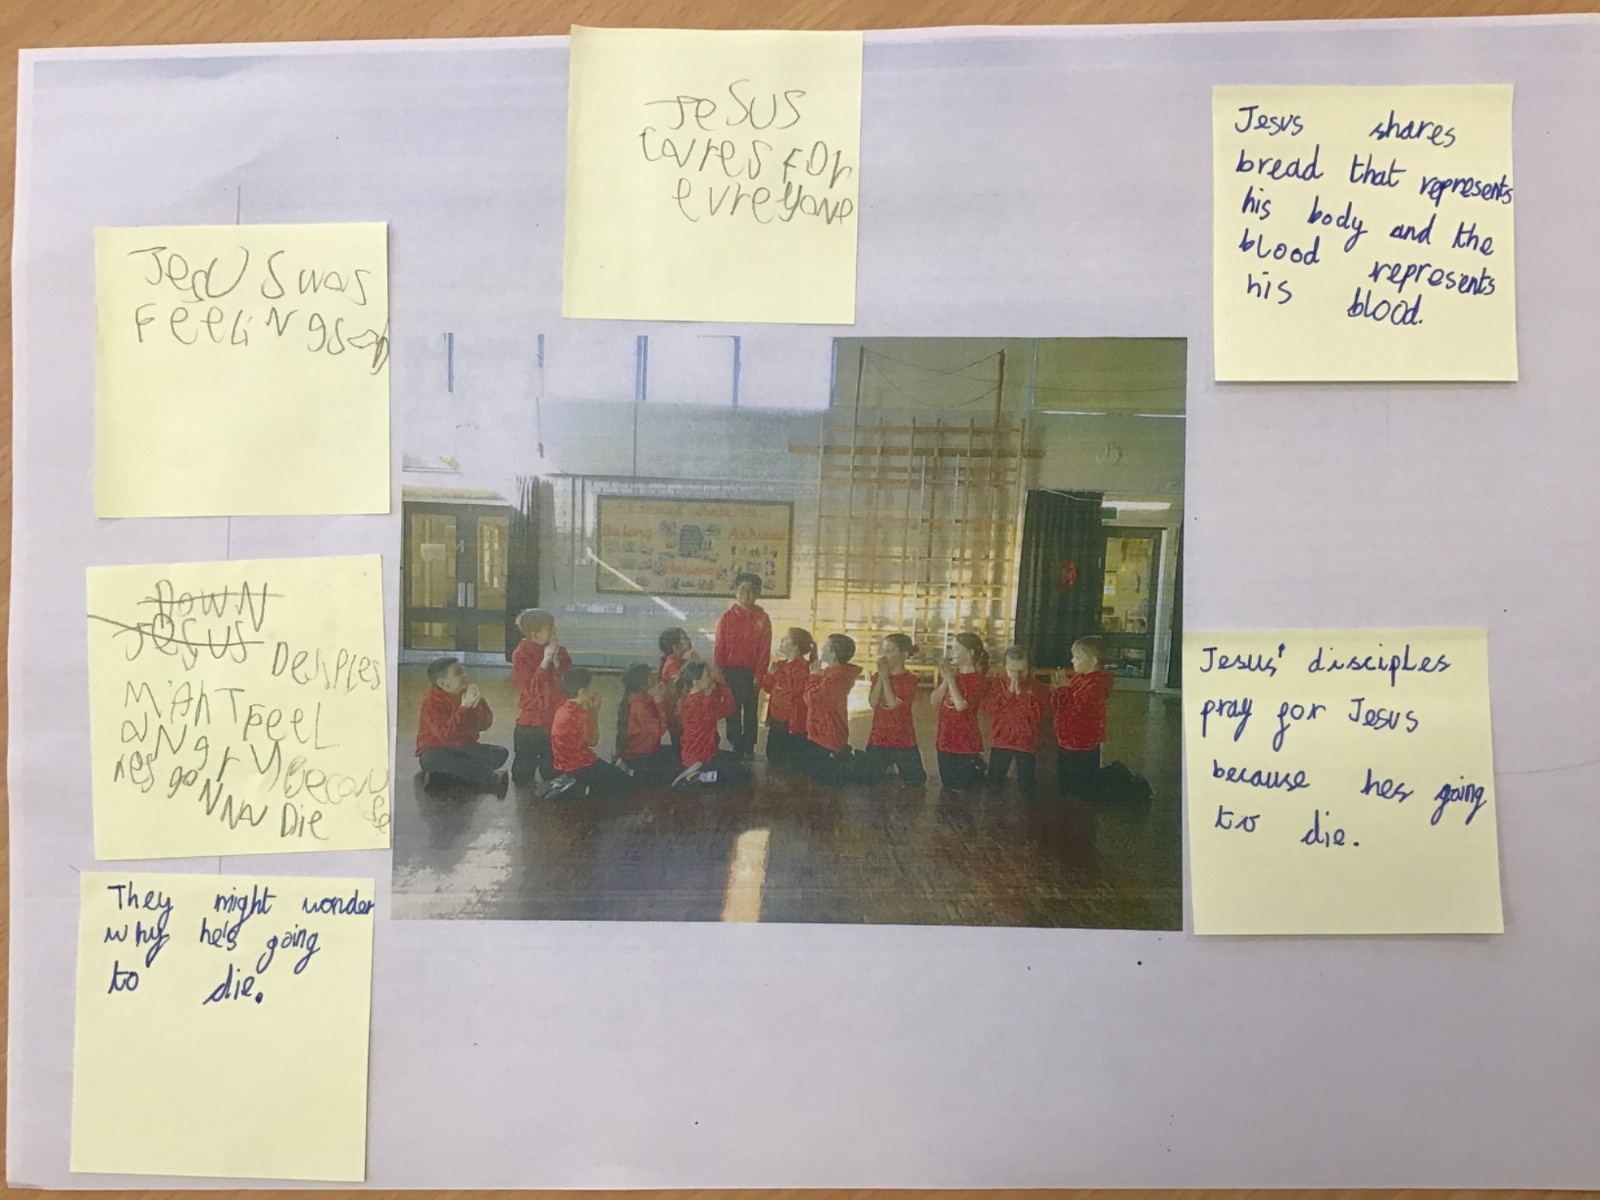 Jesus
cares for
evreyone
Jesus was
feeling sad
Down
Jesus Desiples
Might feel
angry Because
hes gonna Die
They might wonder
why he's going
to die.
Jesus shares
bread that represents
his body and the
blood represents
his blood.
Jesus' disciples
pray for Jesus
because hes going
to die.
Belong
Achieve
Believe